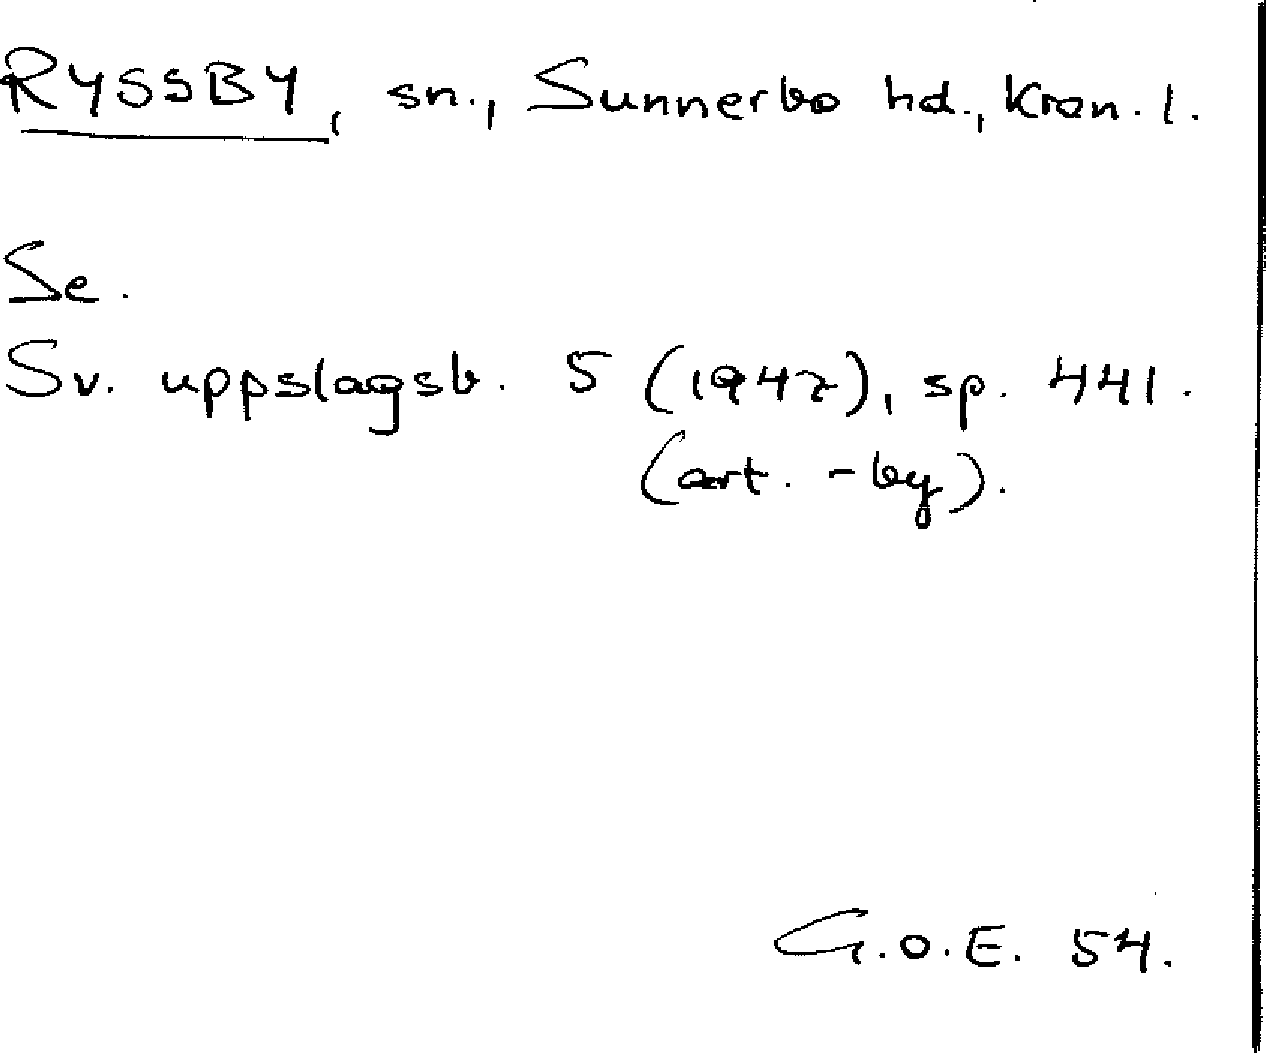 RYSSBY, sn., Sunnerbo hd., Kron. l.
Se.
Sv. uppslagsb. 5 (1947), sp. 441.
(art. -by).
G.O.E. 54.